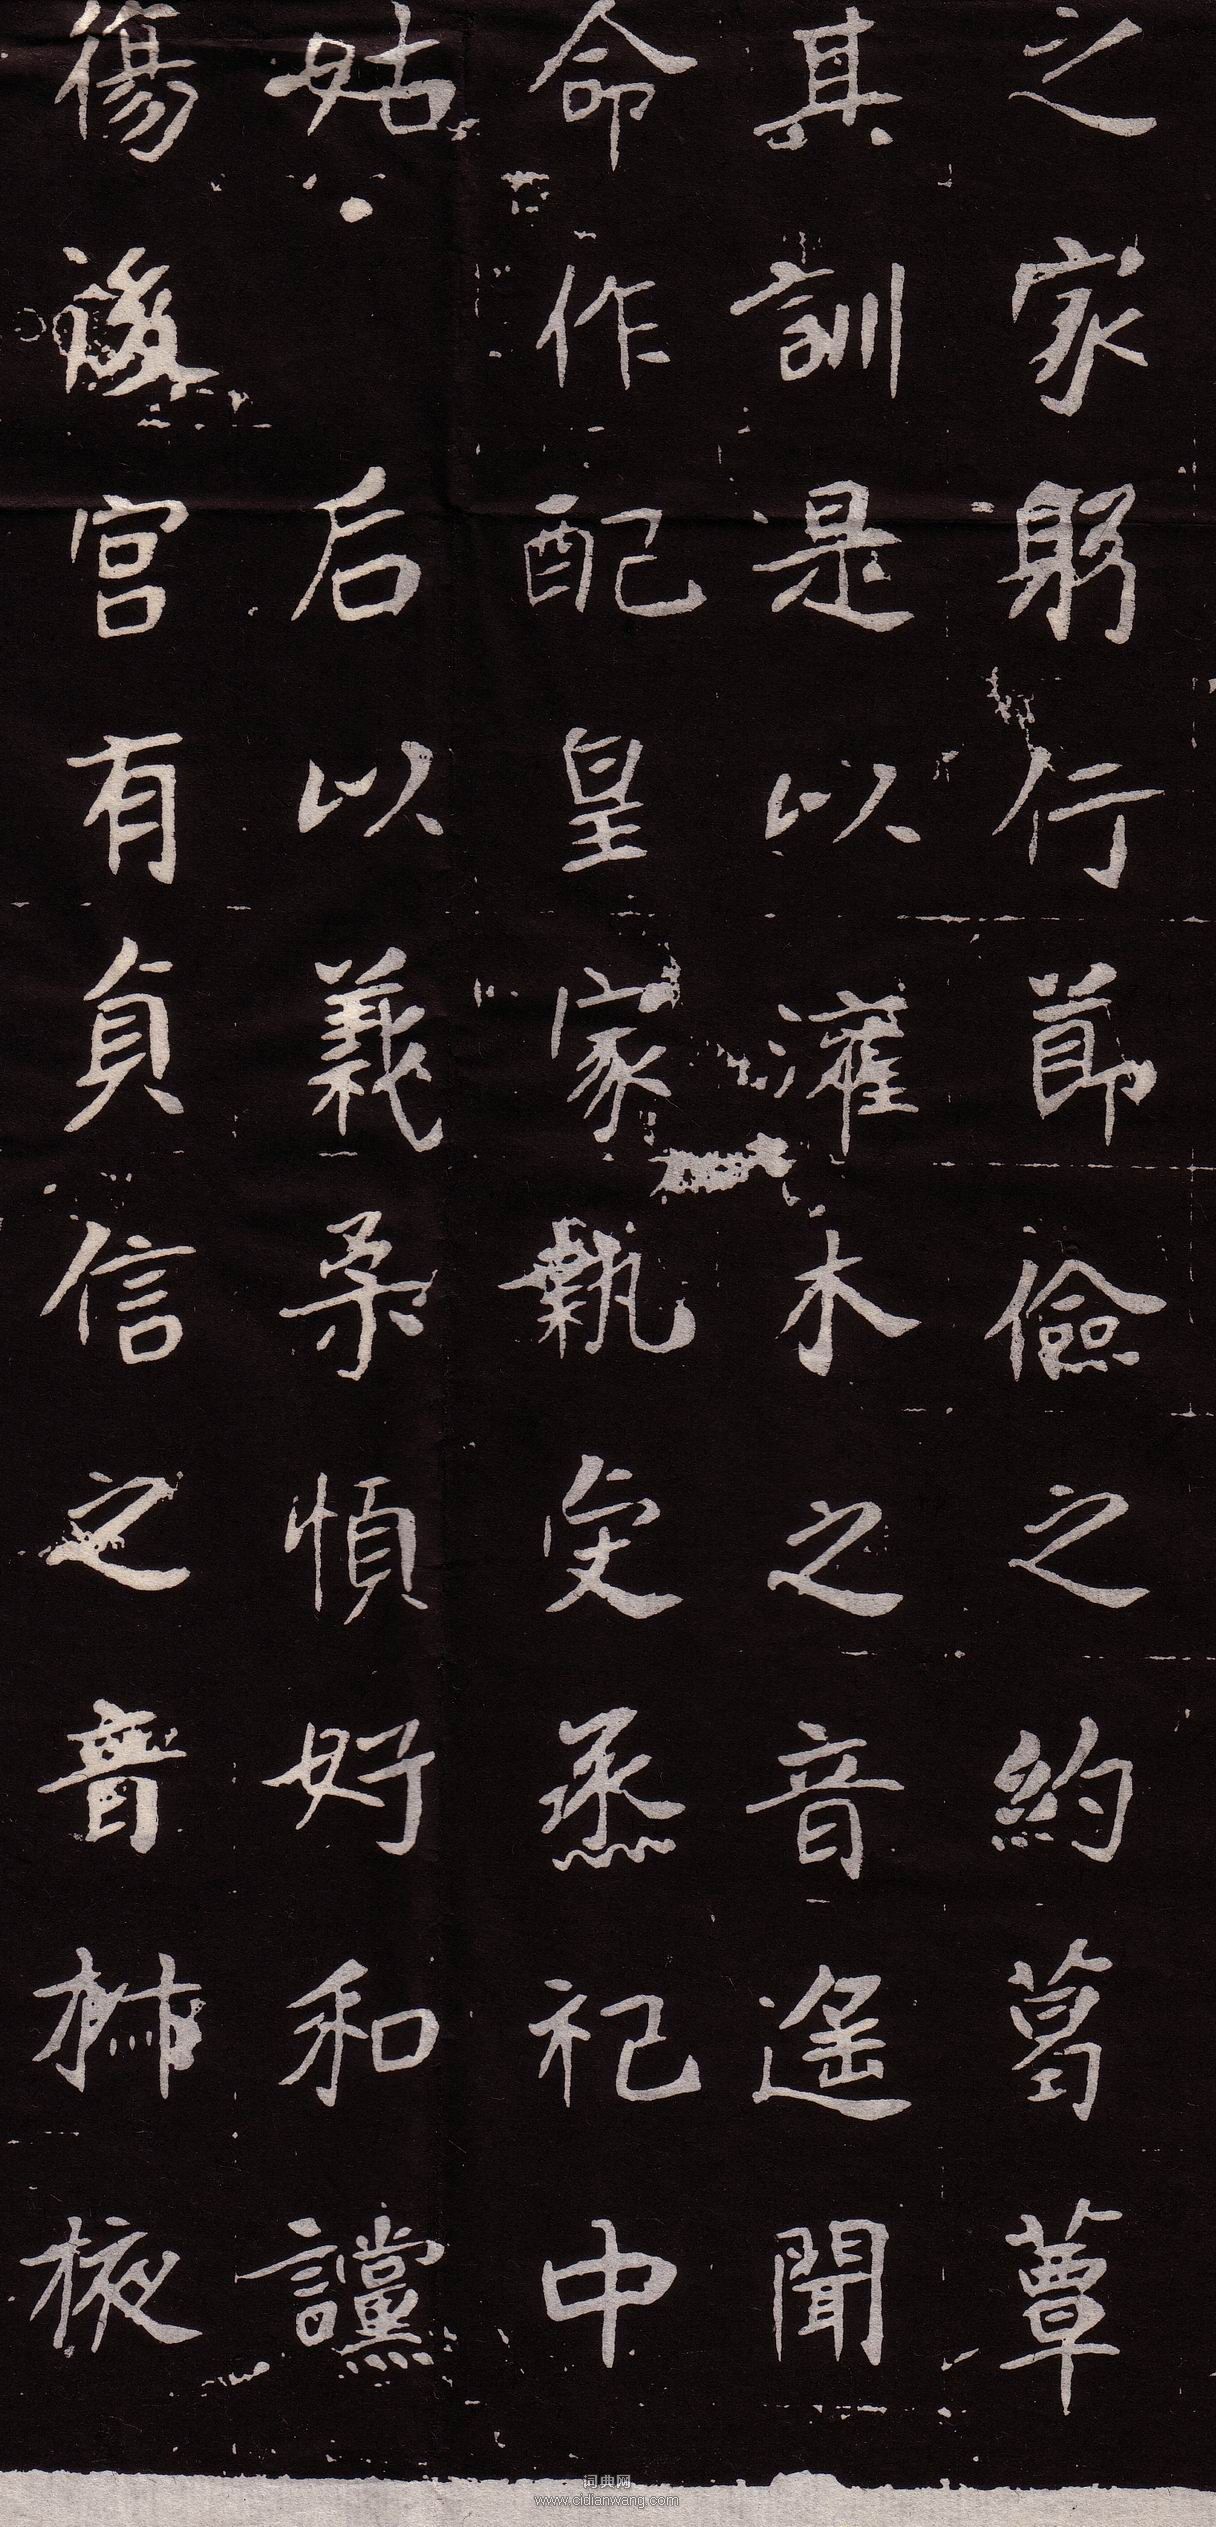 之家躬行節儉之約葛蕈
其訓是以灌木之音遥聞
命作配皇家執笲烝祀中
姑后以義柔順好和讜
傷後宮有貞信之音椒掖
词典网
www.cidianwang.com